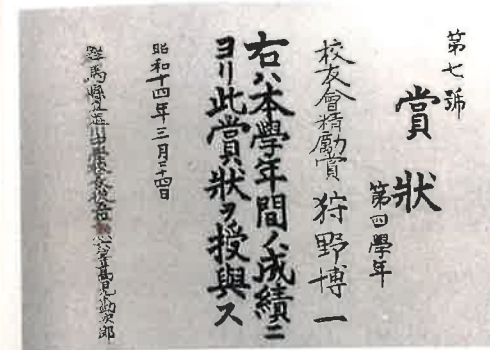 第七號
賞狀
第四學年
校友會精勵賞 狩野博一
右ハ本學年間ノ成績ニ
ヨリ此賞狀ヲ授與ス
昭和十四年三月二十四日
群馬縣立澁川中學校校友會